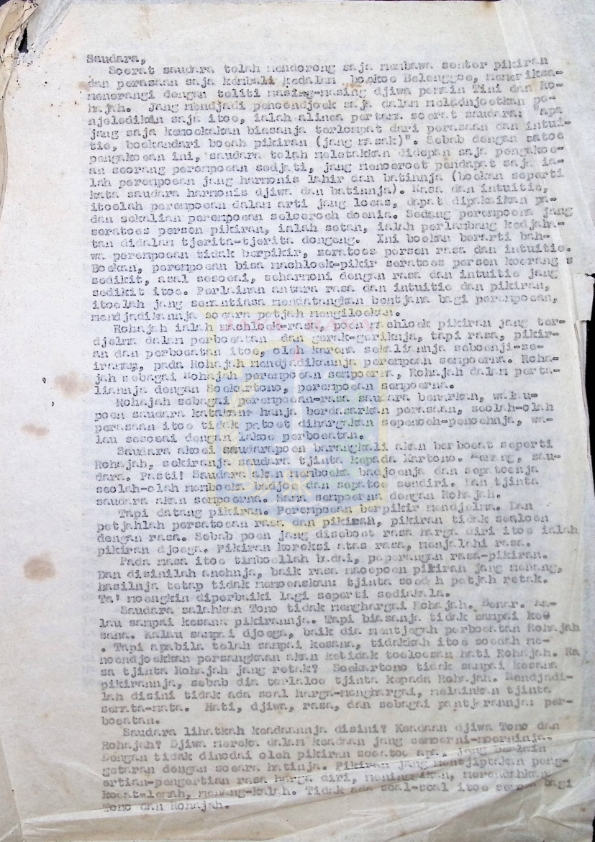 Saudara,
Soerat saudara telah mendorong saja membawa senter pikiran
dan perasaan saja kembali kedalam boekoe Belenggoe, memeriksa-
menerangi dengan teliti masing-masing djiwa pemain Tini dan Ro-
hajah. Jang mendjadi penoendjoek saja dalam melandjoetkan pe-
njelidikan saja itoe, ialah alinea pertama soerat saudara: "Apa
jang saja kemoekakan biasanja terlompat dari perasaan dan intui-
tie, boekandari boeah pikiran (jang masak)". Sebab dengan satoe
pengakoean ini, saudara telah meletakkan didepan saja pengakoe-
an seorang perempoean sedjati, jang mentjotjoet pendapat saja ia-
lah perempoean jang harmonis lahir dan batinnja (boekan seperti
kata saudara harmonis djiwa dan batinnja). Rasa dan intuitie,
itoelah perempoean dalam arti jang loeas, dapat dipakaikan pa-
da sekalian perempoean seloeroeh doenia. Sedang perempoean jang
seratoes persen pikiran, ialah setan, ialah perlambang kedjaha-
tan didalam tjerita-tjerita dongeng. Ini boekan berarti bah-
wa perempoean tidak berpikir, seratoes persen rasa dan intuitie.
Boekan, perempoean bisa machloek-pikir seratoes persen koerang
sedikit, asal sesoeai, seharmoni dengan rasa dan intuitie jang
sedikit itoe. Perlainan antara rasa dan intuitie dan pikiran,
itoelah jang senantiasa mendatangkan bentjana bagi perempoean,
mendjadikannja soeara petjah mengiloekan.
Rohajah ialah machloek-rasa, poen machloek pikiran jang ter-
djelma dalam perboeatan dan gerak-geriknja, tapi rasa, pikir-
an dan perboeatan itoe, oleh karena sekaliannja seboenji-se-
irama, pada Rohajah mendjadikannja perempoean sempoerna. Roha-
jah sebagai Rohajah perempoean sempoerna, Rohajah dalam perta-
liannja dengan Soekartono, perempoean sempoerna.
Rohajah sebagai perempoean-rasa saudara benarkan, walau-
poen saudara katakan: hanja berdasarkan perasaan, seolah-olah
perasaan itoe tidak patoet dihargakan sepenoeh-penoehnja, wa-
lau sesoeai dengan lakoe perboeatan.
Saudara akoei saudarapoen barangkali akan berboeat seperti
Rohajah, sekiranja saudara tjinta kepada Kartono. sau-
dara. Pasti! Saudara akan memboeka badjoenja dan sepatoenja
seolah-olah memboeka badjoe dan sepatoe sendiri. Dan tjinta
saudara akan sempoerna. Sama sempoerna dengan Rohajah.
Tapi datang pikiran. Perempoean berpikir mendjelma. Dan
petjahlah persatoean rasa dan pikiran, pikiran tidak sealoen
dengan rasa. Sebab poen jang diseboet rasa harga diri itoe ialah
pikiran djoega. Pikiran koreksi atas rasa, menjalahi rasa.
Pada masa itoe timboellah badai, peperangan rasa-pikiran.
Dan disinilah anehnja, baik rasa maoepoen pikiran jang menang,
hasilnja tetap tidak memoeaskan: tjinta soedah petjah retak.
Ta' moengkin diperbaiki lagi seperti sediakala.
Saudara salahkan Tono tidak menghargai Rohajah. Benar. Ka-
lau sampai kesana pikirannja. Tapi biasanja tidak sampai ke
sana. Kalau sampai djoega, baik dia mentjegah perboeatan Rohajah
. Tapi apabila telah sampai kesana, tidakkah itoe soedah me-
noendjoekkan persangkaan akan ketidak toeloesan hati Rohajah. Ra
sa tjinta Rohajah jang retak? Soekartono tidak sampai kesana
pikirannja, sebab dia terlaloe tjinta kepada Rohajah. Mendjadi-
lah disini tidak ada soal harga-menghargai, melainkan tjinta
semata-mata. Hati, djiwa, rasa, dan sebagai pantjarannja: per-
boeatan.
Saudara lihatkah keadaannja disini? Keadaan djiwa Tono dan
Rohajah? Djiwa mereka dalam keadaan jang semoerni-moerninja.
Dengan tidak dinodai oleh pikiran soeatoe apa, jang berlain
getaran dengan soeara hatinja. Pikiran jang mentjiptakan peng-
ertian-pengertian rasa harga diri, meninggikan, merendahkan
koeat-lemah, menang-kalah. Tidak ada soal-soal itoe bagi
Tono dan Rohajah.